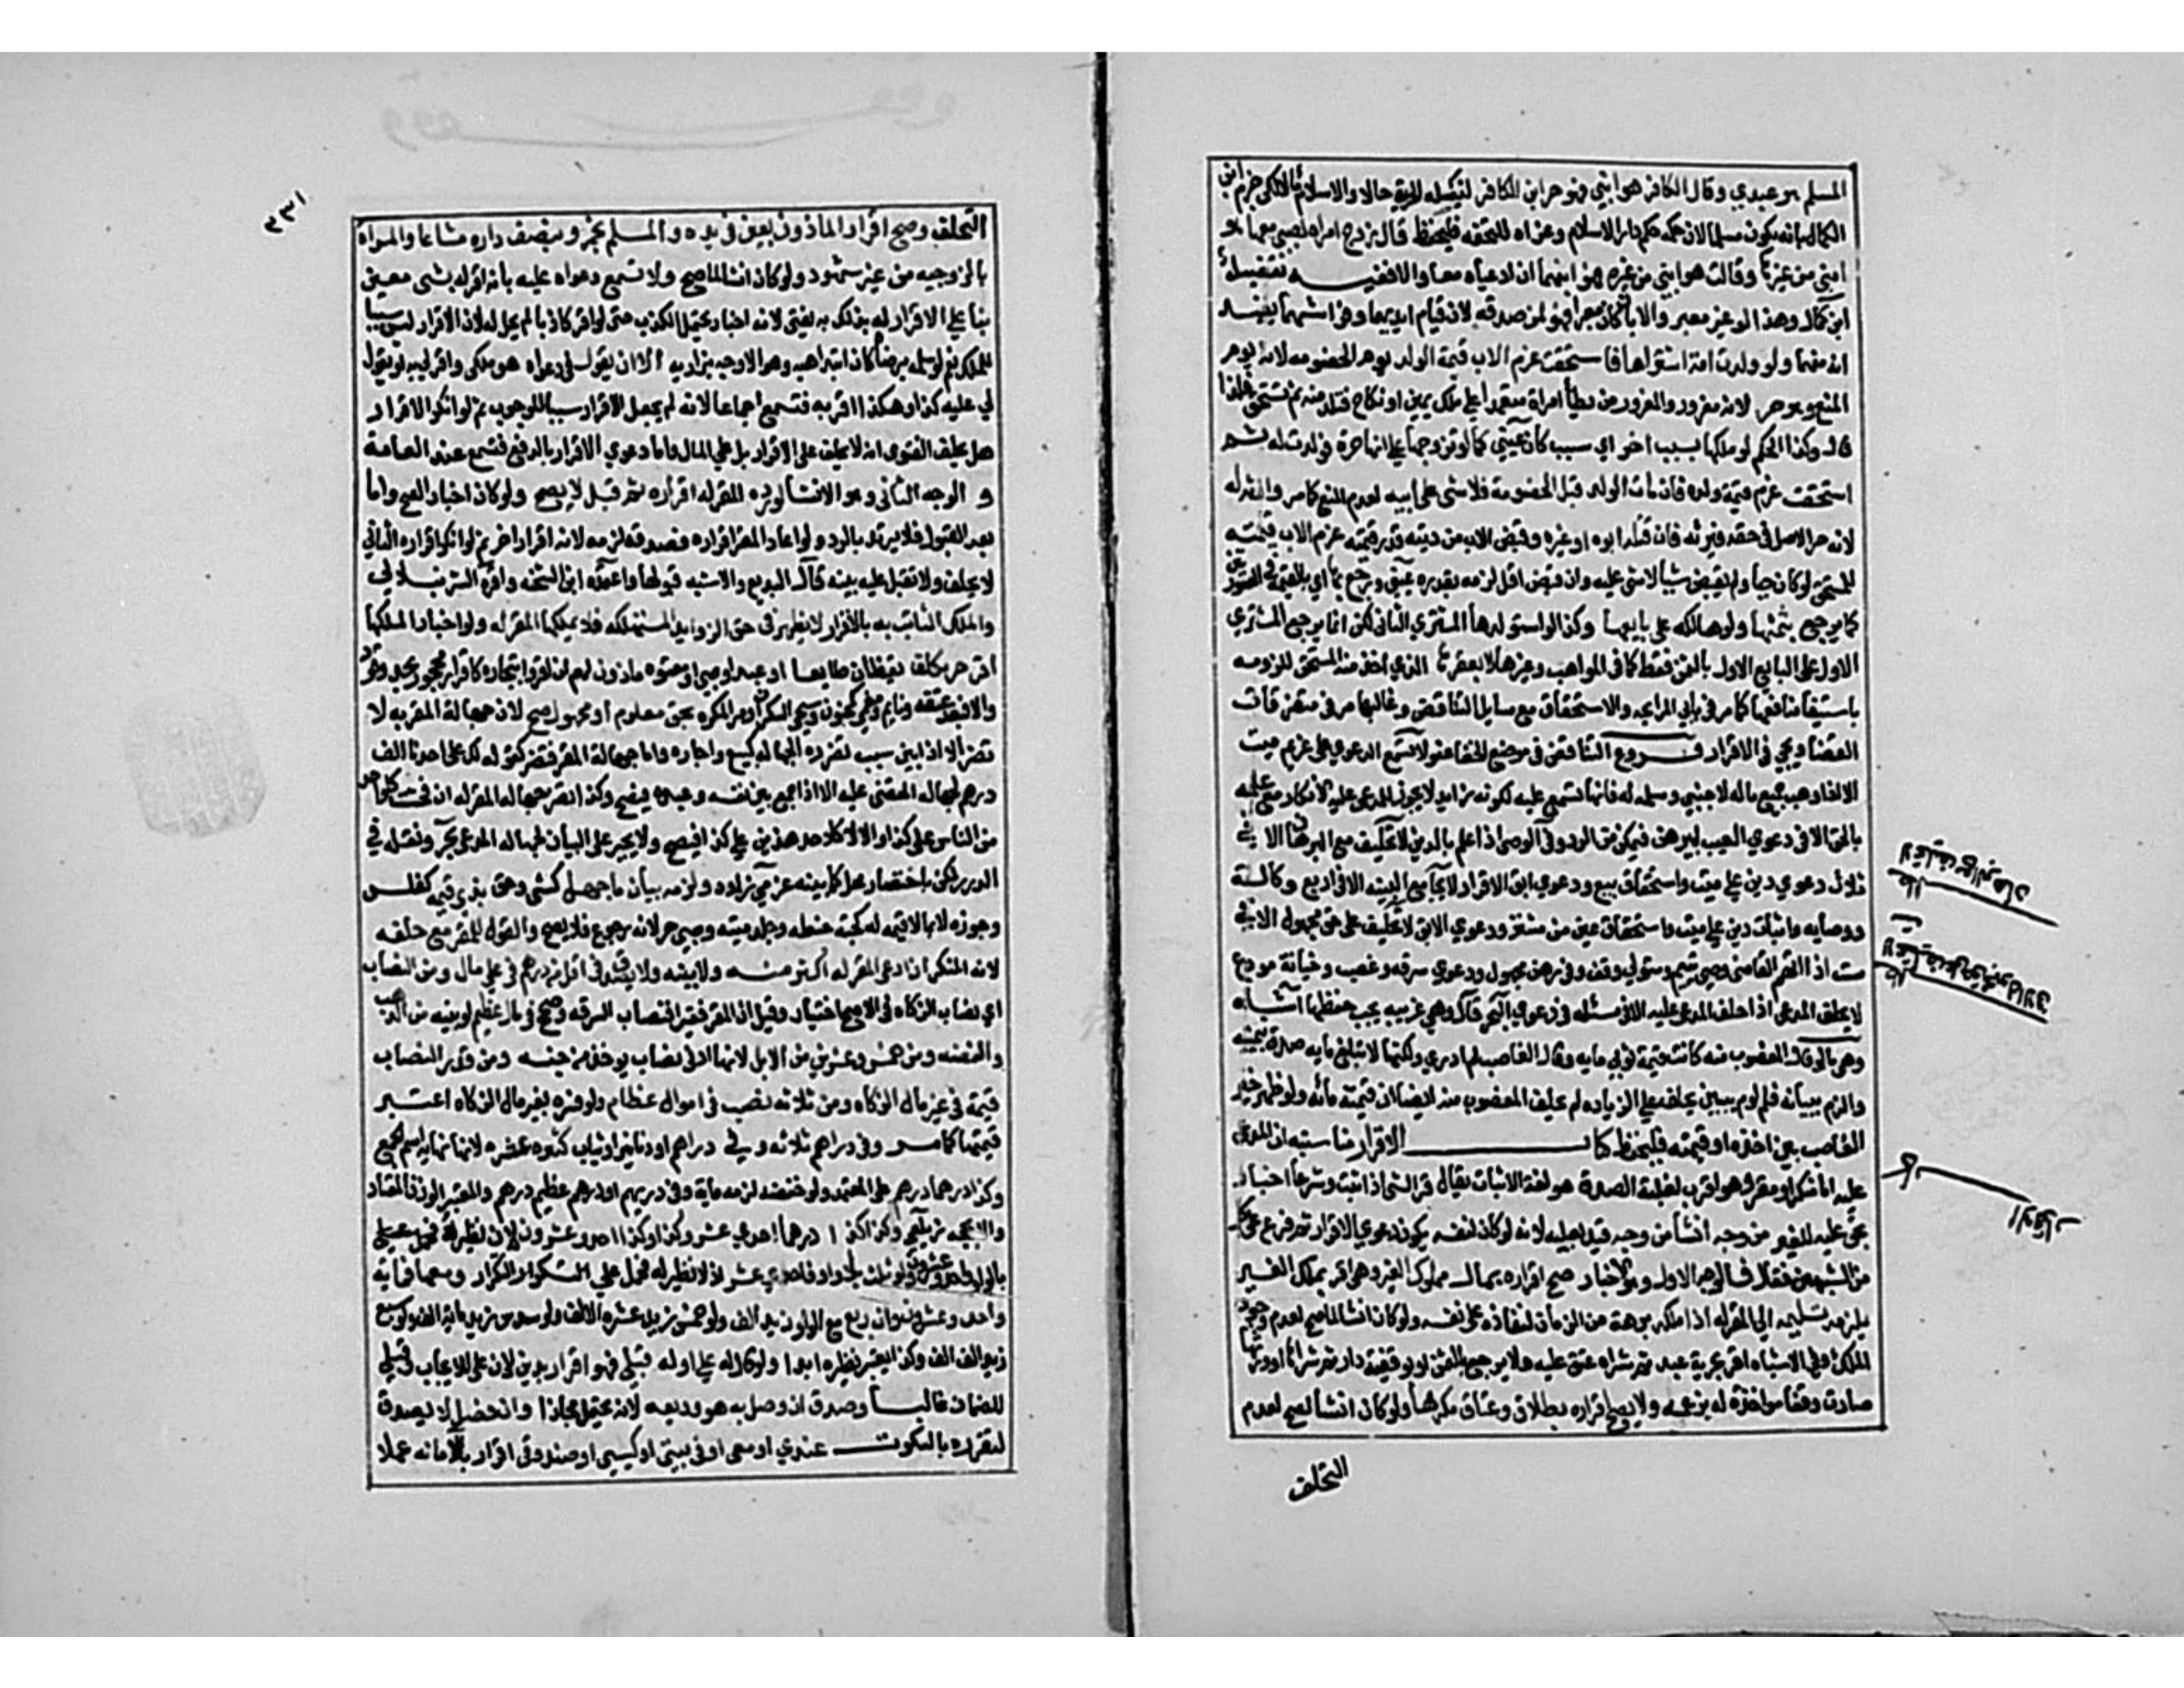 المسلم هو عبدي وقال الكافر هو ابني فهو حر ابن الكافر لنيله الحرية حالا والاسلام مالا لكن جزم ابن
الكمال بانه يكون مسلما لان حكمه حكم دار الاسلام وعزاه للتحفة فليحفظ قال زوج امراة لصبي معهما هو
ابني من غيرها وقالت هو ابني من غيره فهو ابنهما ان ادعياه معا والا ففيه تفصيل
ابن كمال وهذا لو غير معبر والا بان كان معبرا فهو لمن صدقه لان قيام ايديهما وفراشهما يفيد
انه منهما ولو ولدت امة اشتراها فاستحقت غرم الاب قيمة الولد يوم الخصومة لانه يوم
المنع وهو حر لانه مغرور والمغرور من يطأ امراة معتمدا على ملك يمين او نكاح فتلد منه ثم تستحق فلذا
قال وكذا الحكم لو ملكها بسبب اخر اي سبب كان عيني كما لو تزوجها على انها حرة فولدت له ثم
استحقت غرم قيمة ولده فان مات الولد قبل الخصومة فلا شي على ابيه لعدم المنع كما مر وارثه له
لانه حر الاصل في حقه فيرثه فان قتله ابوه او غيره وقبض الاب من ديته قدر قيمته غرم الاب قيمته
للمستحق لو كان حيا ولم يقبض شيأ لا شي عليه وان قبض اقل لزمه بقدره عيني ورجع بها اي بالقيمة في الصورتين
كما يرجع بثمنها ولو هالكة على بايعها وكذا لو استولدها المشتري الثاني لكن انما يرجع المشتري
الاول على البايع الاول بالثمن فقط كما في المواهب وغيرها لا بعقرها الذي اخذ منه المستحق للزومه
باستيفا منافعها كما مر في بابي المرابحة والاستحقاق مع مسايل التناقض وغالبها مر في متفرقات
القضا ويجي في الاقرار فروع التناقض في موضع الخفا عفو لا تسمع الدعوي على غريم ميت
الا اذا وهب جميع ماله لاجنبي وسلمه له فانها تسمع عليه لكونه زايد لا يجوز للمدعى عليه الانكار مع علمه
بالحق الا في دعوي العيب ليبرهن فيتمكن من الرد وفي الوصي اذا علم بالدين لا تحليف مع البرهان الا في
ثلاث دعوي دين على ميت واستحقاق مبيع ودعوي ابق الاقرار لا يجامع البينة الا في اربع وكالة
ووصاية واثبات دين على ميت واستحقاق عين من مشتر ودعوي الابق لا تحليف على حق مجهول الا في
ست اذا اتهم القاضي وصي يتيم ومتولي وقف وفي رهن مجهول ودعوي سرقة وغصب وخيانة مودع
لا يحلف المدعي اذا حلف المدعى عليه الا في مسئلة في دعوي البحر قال وهي غريبة يجب حفظها اشباه
وهي ما لو قال المغصوب منه كانت قيمة ثوبي ماية وقال الغاصب لم ادري ولكنها لا تبلغ ماية صدق بيمينه
والزم ببيانه فلو لم يبين يحلف على الزيادة ثم يحلف المغصوب منه ايضا ان قيمته مائة ولو ظهر خير
الغاصب بين اخذه او قيمته فليحفظ كتاب الاقرار مناسبته ان المدعى
عليه اما منكر او مقر وهو اقرب لغلبة الصدق هو لغة الاثبات يقال قر الشي اذا ثبت وشرعا اخبار
بحق عليه للغير من وجه انشا من وجه قيد بعليه لانه لو كان لنفسه يكون دعوي لا اقرار ثم فرع على كل
من الشبهين فقال فالوجه الاول وهو الاخبار صح اقراره بمال مملوك للغير ومتى اقر بملك الغير
يلزمه تسليمه الى المقر له اذا ملكه برهة من الزمان لنفاذه على نفسه ولو كان انشا لما صح لعدم وجود
الملك وفي الاشباه اقر بحرية عبد ثم شراه عتق عليه ولا يرجع بالثمن او بوقفية دار ثم شراها او ورثها
صارت وقفا مواخذة له بزعمه ولا يصح اقراره بطلاق وعتاق مكرها ولو كان انشا لصح لعدم
التخلف
لا تحليف مع البرهان
الا في ثلاث
لا تحليف على حق مجهول
الا في ست
الاقرار
٢٣١
التخلف وصح اقرار الماذون بعين في يده والمسلم بخمر وبنصف داره مشاعا والمراة
بالزوجية من غير شهود ولو كان انشا لما صح ولا تسمع دعواه عليه بانه اقر له بشي معين
بنا على الاقرار له بذلك به يفتى لانه اخبار يحتمل الكذب حتى لو اقر كاذبا لم يحل له لان الاقرار ليس سببا
للملك نعم لو سلمه برضاه كان ابتدا هبة وهو الاوجه بزازية الا ان يقول في دعواه هو ملكي واقر لي به او يقول
لي عليه كذا وهكذا اقر به فتسمع اجماعا لانه لم يجعل الاقرار سببا للوجوب ثم لو انكر الاقرار
هل يحلف الفتوى انه لا يحلف على الاقرار بل على المال واما دعوي الاقرار بالدفع فتسمع عند العامة
و الوجه الثاني وهو الانشا لو رد المقر له اقراره ثم قبل لا يصح ولو كان اخبارا لصح واما
بعد القبول فلا يرتد بالرد ولو اعاد المقر اقراره فصدقه لزمه لانه اقرار اخر ثم لو انكر اقراره الثاني
لا يحلف ولا تقبل عليه بينة قال البديع والاشبه قبولها واعتمده ابن الشحنه واقره الشرنبلالي
والملك الثابت به بالاقرار لا يظهر في حق الزوايد المستهلكه فلا يملكها المقر له ولو اخبارا لملكها
اقر حر مكلف يقظان طايعا او عبد او صبي او معتوه ماذون لهم ان اقروا بتجارة كاقرار محجور بحد وقود
والا فبعد عتقه ونايم ومغمى عليه كمجنون وسيجي السكران ومر المكره بحق معلوم او مجهول صح لان جهالة المقر به لا
تضر الا اذا بين سبب تضره الجهالة كبيع واجارة واما جهالة المقر فتضر كقوله لك على احدنا الف
درهم لجهالة المقضى عليه الا اذا جمع بين نفسه وعبده فيصح وكذا تضر جهالة المقر له ان فحشت كلواحد
من الناس على كذا والا لا كلاحد هذين علي كذا فيصح ولا يجبر على البيان لجهالة المدعي بحر ونقله في
الدرر لكن باختصار مخل كما بينه عزمي زاده ولزمه بيان ما جهل كشي وحق بذي قيمة كفلس
وجوزه لا بما لا قيمة له كحبة حنطة وجلد ميتة وصبي حر لانه رجوع فلا يصح والقول للمقر مع حلفه
لانه المنكر ان ادعى المقر له اكثر منه ولا بينة ولا يصدق في اقل من درهم في علي مال ومن النصاب
اي نصاب الزكاة في الاصح اختيار وقيل ان المقر فقيرا فنصاب السرقة وصحح في مال عظيم لو بينه من الذهب
والفضة ومن خمس وعشرين من الابل لانها ادنى نصاب يوخذ من جنسه ومن قدر النصاب
قيمة في غير مال الزكاة ومن ثلاثة نصب في اموال عظام ولو فسره بغير مال الزكاة اعتبر
قيمتها كما مر وفي دراهم ثلاثة وفي دراهم او دنانير او ثياب كثيرة عشرة لانها نهاية اسم الجمع
وكذا درهما درهم على المعتمد ولو خفضه لزمه ماية وفي دريهم او درهم عظيم درهم والمعتبر الوزن المعتاد
والا بحجة زيلعي وكذا كذا درهما احدي عشر وكذا وكذا احد وعشرون لان نظيره
بالواو احد وعشرون ولو ثلث بلا واو فاحدي عشر اذ لا نظير له فحمل على التكرار ومعها فماية
واحد وعشرون وان ربع مع الواو زيد الف ولو خمس زيد عشرة الاف ولو سدس زيد ماية الف ولو سبع
زيد الف الف وكذا يعتبر نظيره ابدا ولو قال له علي او له قبلي فهو اقرار بدين لان علي للايجاب وقبلي
للضمان غالبا وصدق ان وصل به هو وديعة لانه يحتمله مجازا وان فصل لا يصدق
لتقرره بالسكوت عندي او معي او في بيتي او كيسي او صندوقي اقرار بالامانه عملا